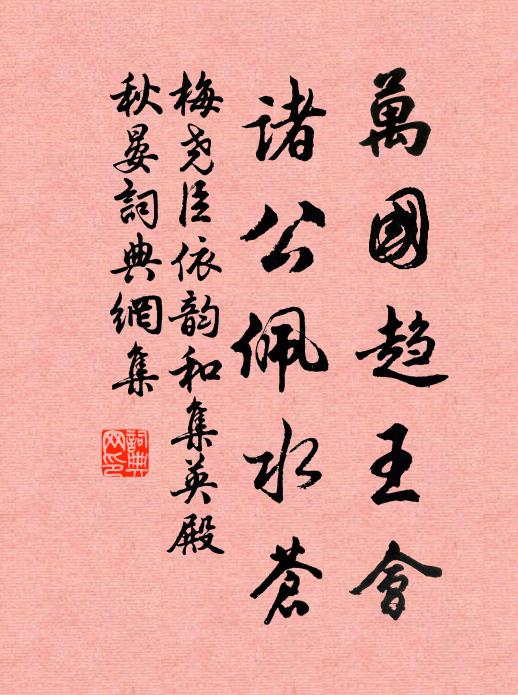 萬國趨王會
諸公佩水蒼
梅堯臣依韵和集英殿
秋晏詞典網集
詞典
网印